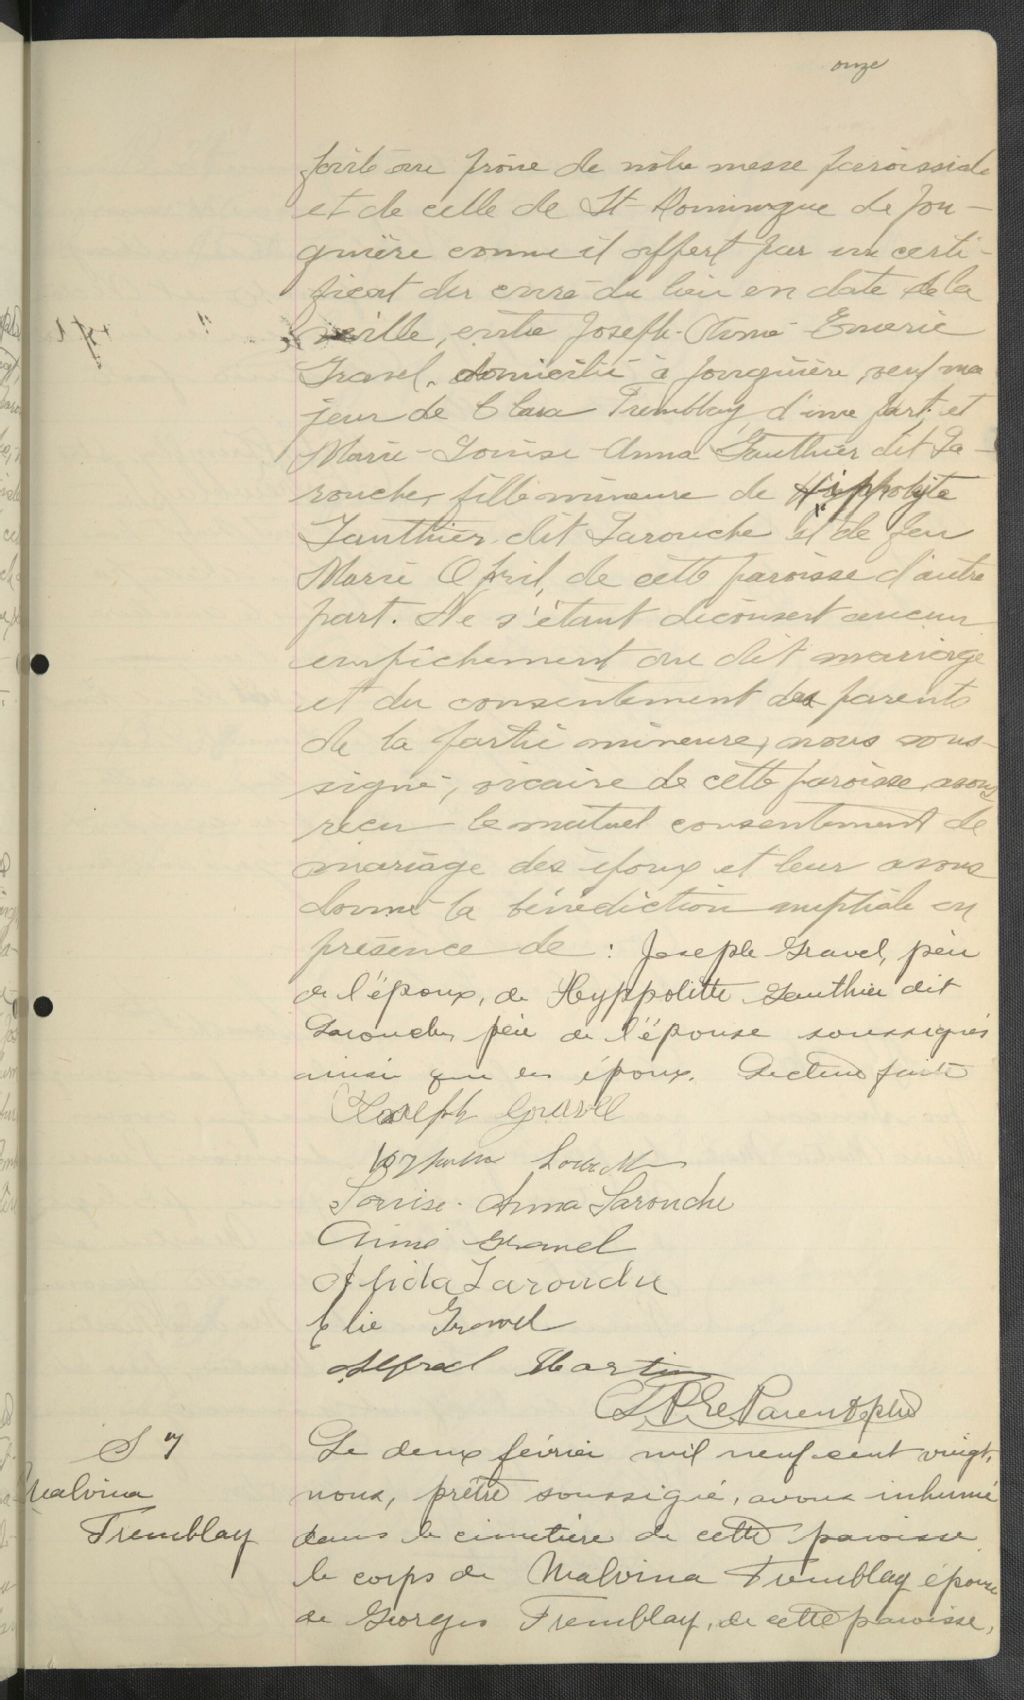 onze
faite au prône de notre messe paroissiale
et de celle de St-Dominique de Jon-
quière comme il appert par un certi-
ficat du curé du lieu en date de la
veille, entre Joseph-Aimé-Emeric
Gravel, domicilié à Jonquière, veuf ma
jeur de Clara Tremblay, d'une part; et
Marie-Louise-Anna Gauthier dit La-
rouche, fille mineure de Hippolyte
Gauthier dit Larouche et de feu
Marie April, de cette paroisse d'autre
part. Ne s'étant découvert aucun
empêchement au dit mariage
et du consentement des parents
de la partie mineure, nous sous-
signé, vicaire de cette paroisse, avons
reçu le mutuel consentement de
mariage des époux et leur avons
donné la bénédiction nuptiale en
présence de : Joseph Gravel, père
de l'époux, de Hyppolitte Gauthier dit
Larouche, père de l'épouse soussignés
ainsi que les époux. Lecture faite
Joseph Gravel
Louise-Anna Larouche
Aimé Gravel
Larouche
Elie Gravel
Alfred Martin
Parent, ptre
S 7
Malvina
Tremblay
Le deux février mil neuf cent vingt,
nous, prêtre soussigné, avons inhumé
dans le cimetière de cette paroisse
le corps de Malvina Tremblay épouse
de Georges Tremblay, de cette paroisse,